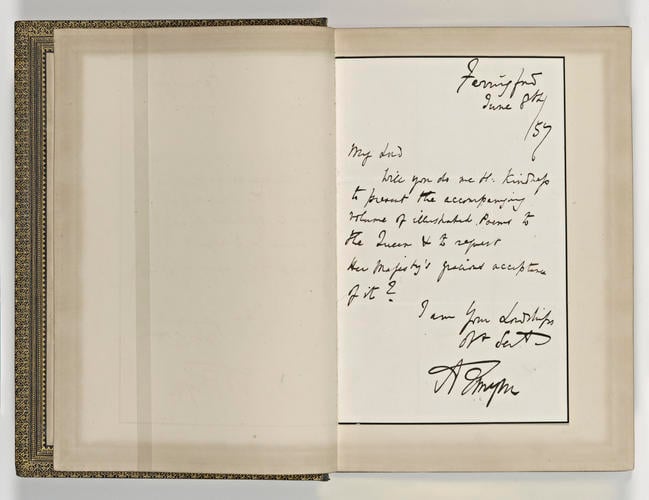 Farringford
June 8th/
/57
My Lord
Will you do me the kindness
to present the accompanying
volume of illustrated Poems to
the Queen & to request
Her Majesty's gracious acceptance
of it?
I am Your Lordships
Obt Servt
A Tennyson